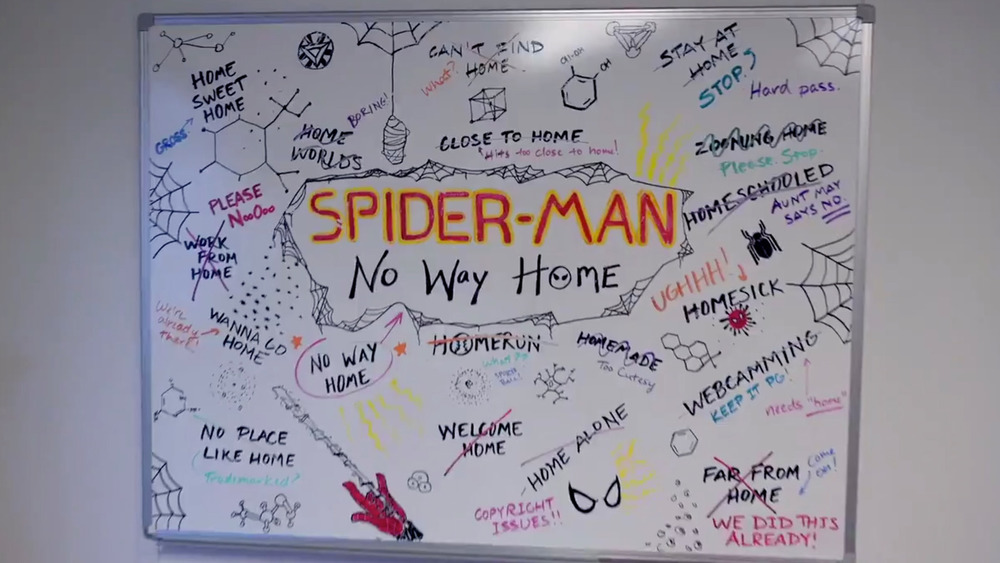 HOME
SWEET
HOME
GROSS
BORING!
HOME
WORLDS
CAN'T FIND
HOME
What?
CH₂OH
OH
CLOSE TO HOME
Hits too close to home!
STAY AT
HOME
STOP.
Hard pass.
ZOOMING HOME
Please. Stop.
HOMESCHOOLED
AUNT MAY
SAYS NO.
PLEASE
NooOoo
WORK
FROM
HOME
SPIDER-MAN
NO WAY HOME
UGHHH!
HOMESICK
We're
already
there!
WANNA GO
HOME
NO WAY
HOME
HOOMERUN
What??
HOMEMADE
Too Cutesy
WEBCAMMING
KEEP IT PG!
needs "home"
NO PLACE
LIKE HOME
Trademarked?
WELCOME
HOME
HOME ALONE
COPYRIGHT
ISSUES!!
FAR FROM
HOME
Come
on!
WE DID THIS
ALREADY!